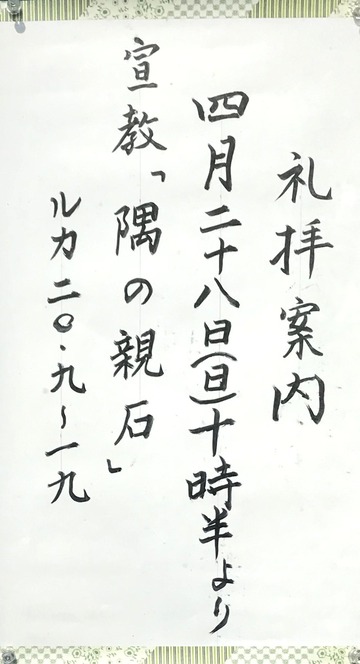 礼拝案内
四月二十八日(日)十時半より
宣教「隅の親石」
ルカ二〇・九〜一九